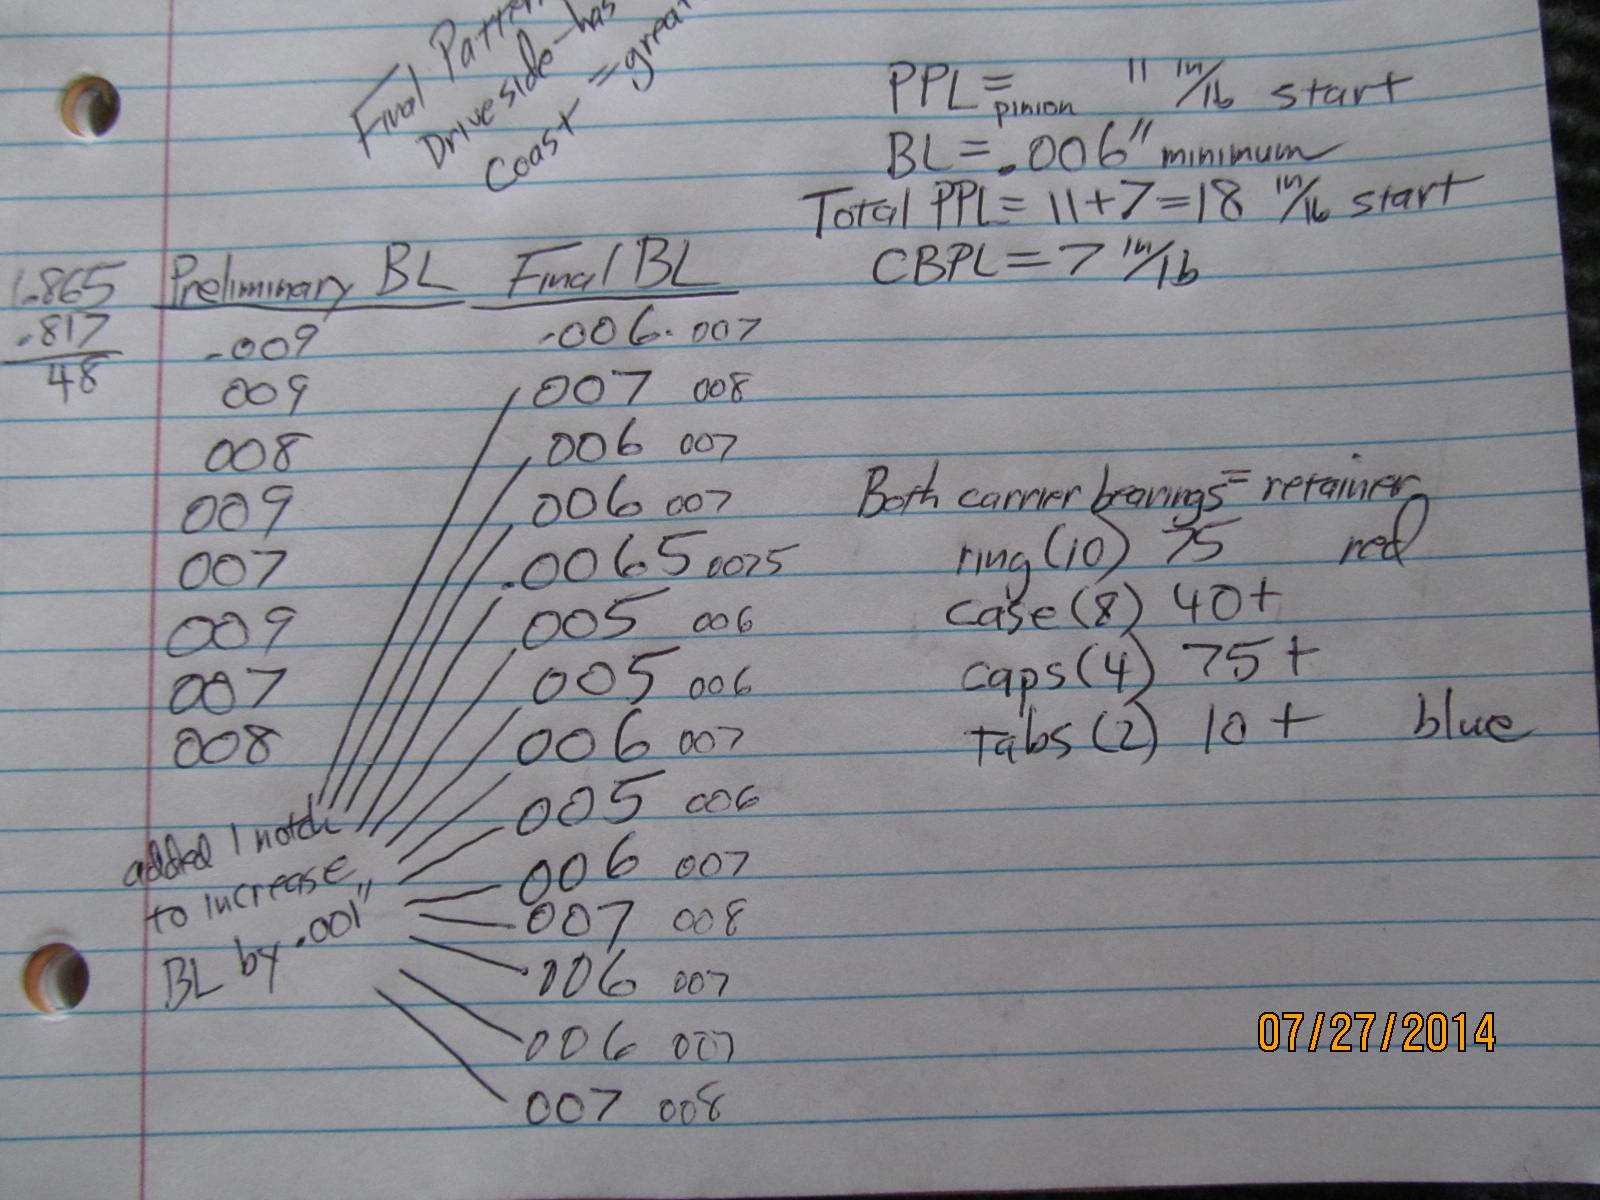 Final Patter
Drive side - has
Coast = great
PPL = pinion 11 in/lb start
BL = .006" minimum
Total PPL = 11+7=18 in/lb start
CBPL = 7 in/lb
1.865
.817
48
Preliminary BL Final BL
.009 .006 .007
009 007 008
008 006 007
009 006 007
007 .0065 0075
009 005 006
007 005 006
008 006 007
005 006
006 007
007 008
006 007
006 007
007 008
added 1 notch
to increase
BL by .001"
Both carrier bearings = retainer
ring (10) 75 red
case (8) 40+
caps (4) 75+
tabs (2) 10+ blue
07/27/2014